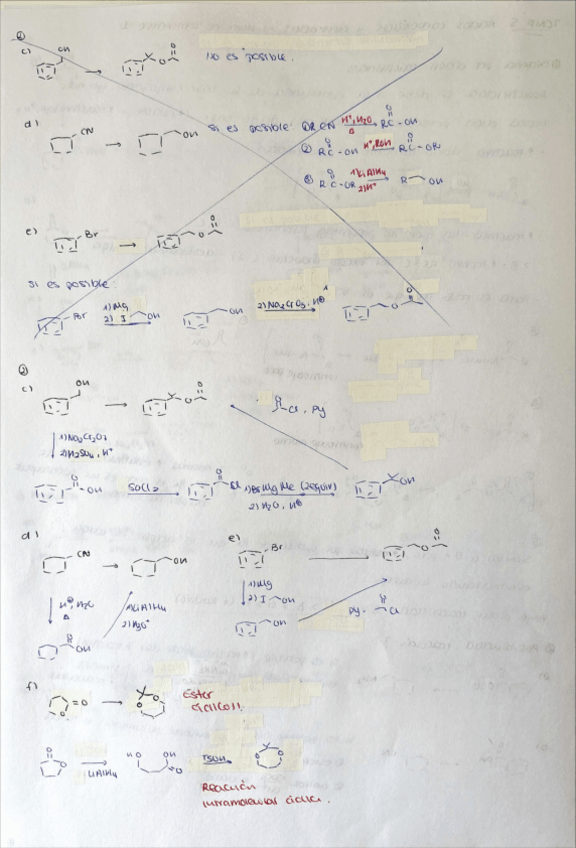 ②
c)
OH
→
O
O
no es posible.
d)
CN
→
OH
si es posible: ① RCN H⁺, H₂O Δ RC-OH
O
② RC-OH H⁺, ROH RC-OR
③ RC-OR 1) LiAlH₄ 2) H⁺ R OH
e)
Br
→
O
O
si es posible:
Br 1) Mg 2) I OH
OH 2) Na₂Cr₂O₇, H⊕
O
O
②
c)
OH
→
O
O
Cl, Py
1) Na₂Cr₂O₇
2) H₂SO₄, H⁺
O
OH
SOCl₂
O
Cl
1) BrMgMe (2equiv)
2) H₂O, H⊕
OH
d)
CN
→
OH
H⊕, H₂O
Δ
1) LiAlH₄
2) H₃O⁺
O
OH
e)
Br
O
O
1) Mg
2) I OH
OH
Py
O
Cl
f)
O
=O
→
O
O
Ester
cíclico
O
O
LiAlH₄
HO
OH
O
TsOH
O
O
Reacción
intramolecular cíclica.